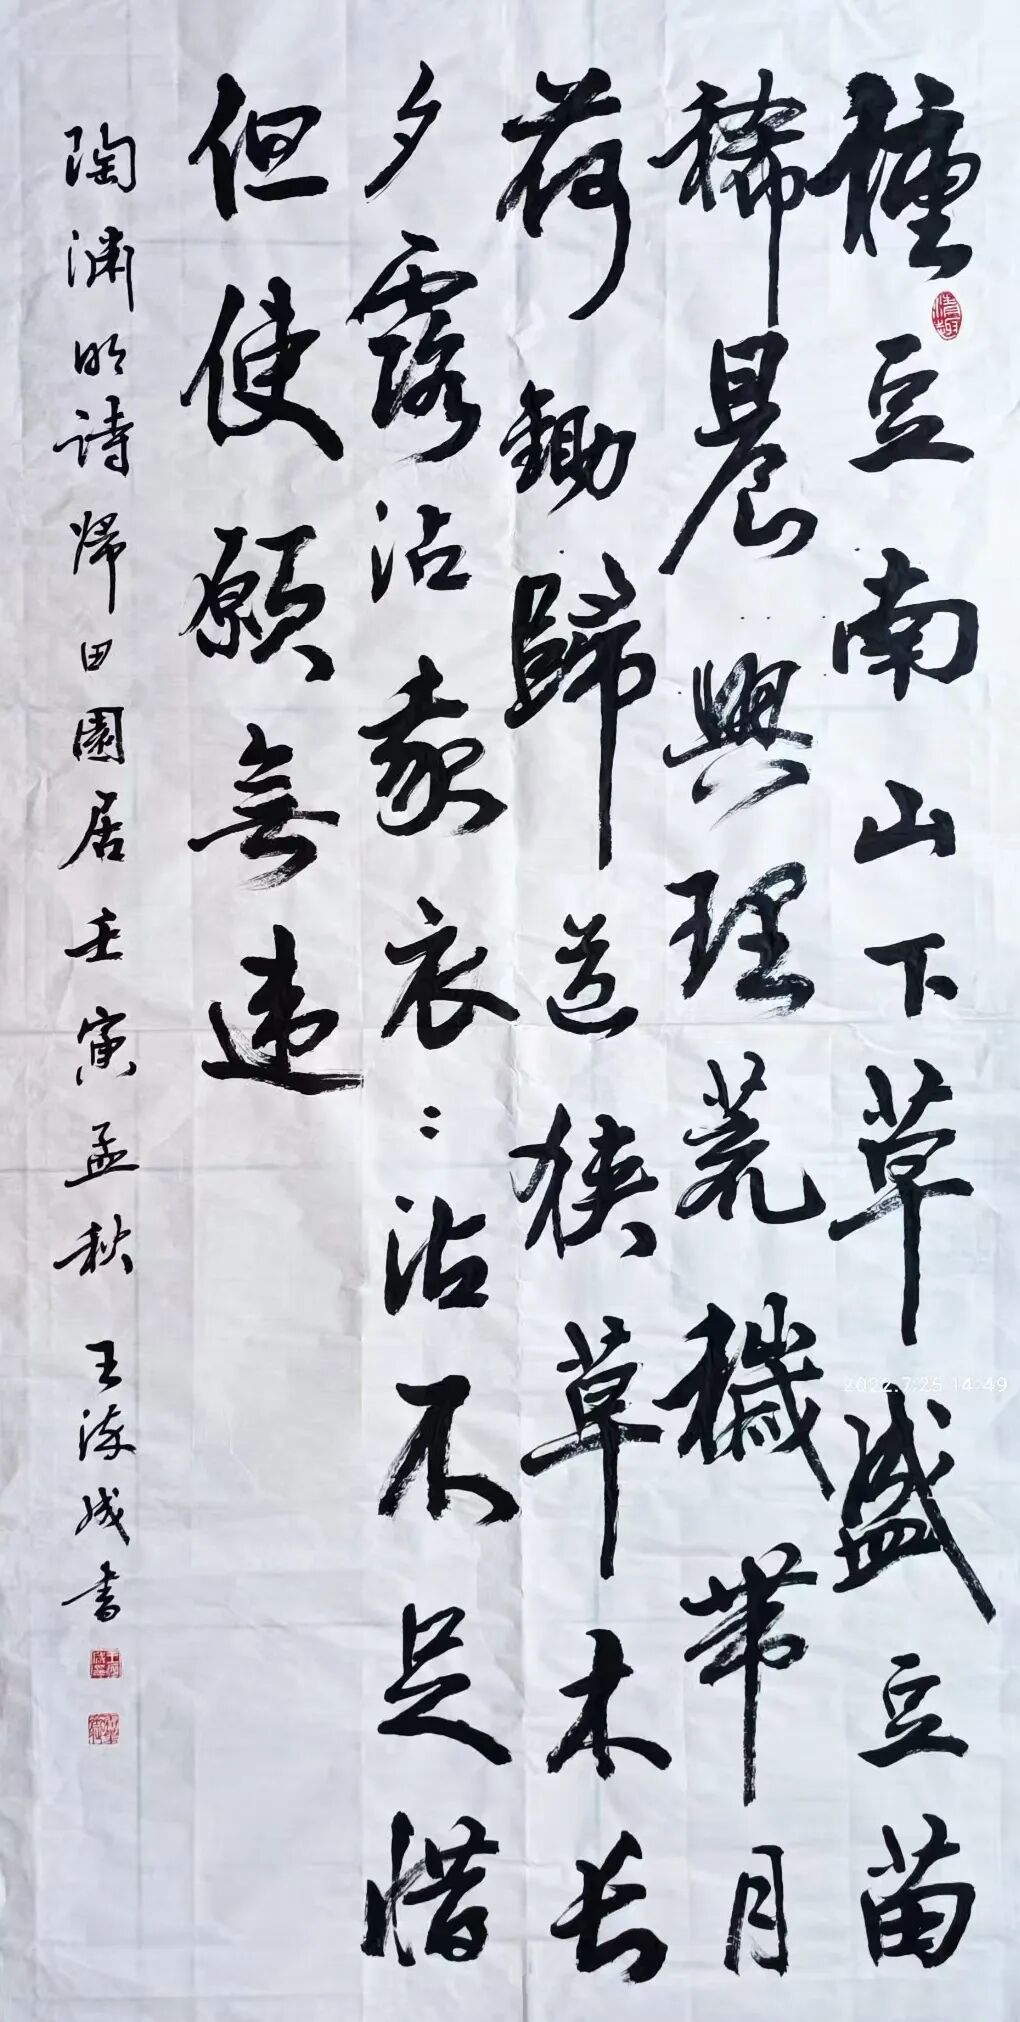 種豆南山下草盛豆苗
稀晨興理荒穢带月
荷鋤歸道狭草木长
夕露沾我衣:沾不足惜
但使願無违
陶渊明诗归田園居壬寅孟秋王海成书
清趣
2022.7.25 14:49